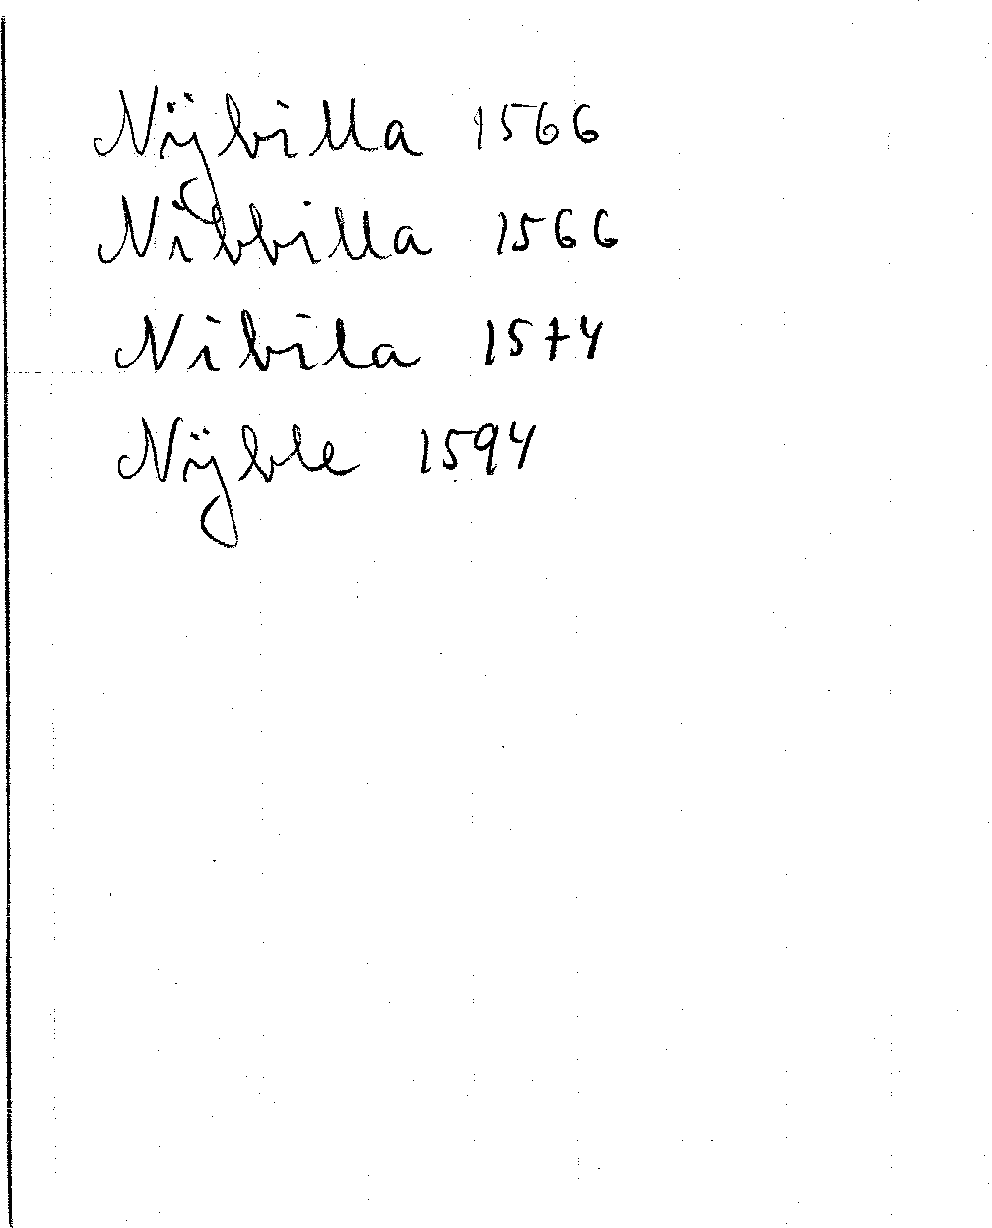 Nÿbilla 1566
Nibbilla 1566
Nibila 1574
Nÿble 1594